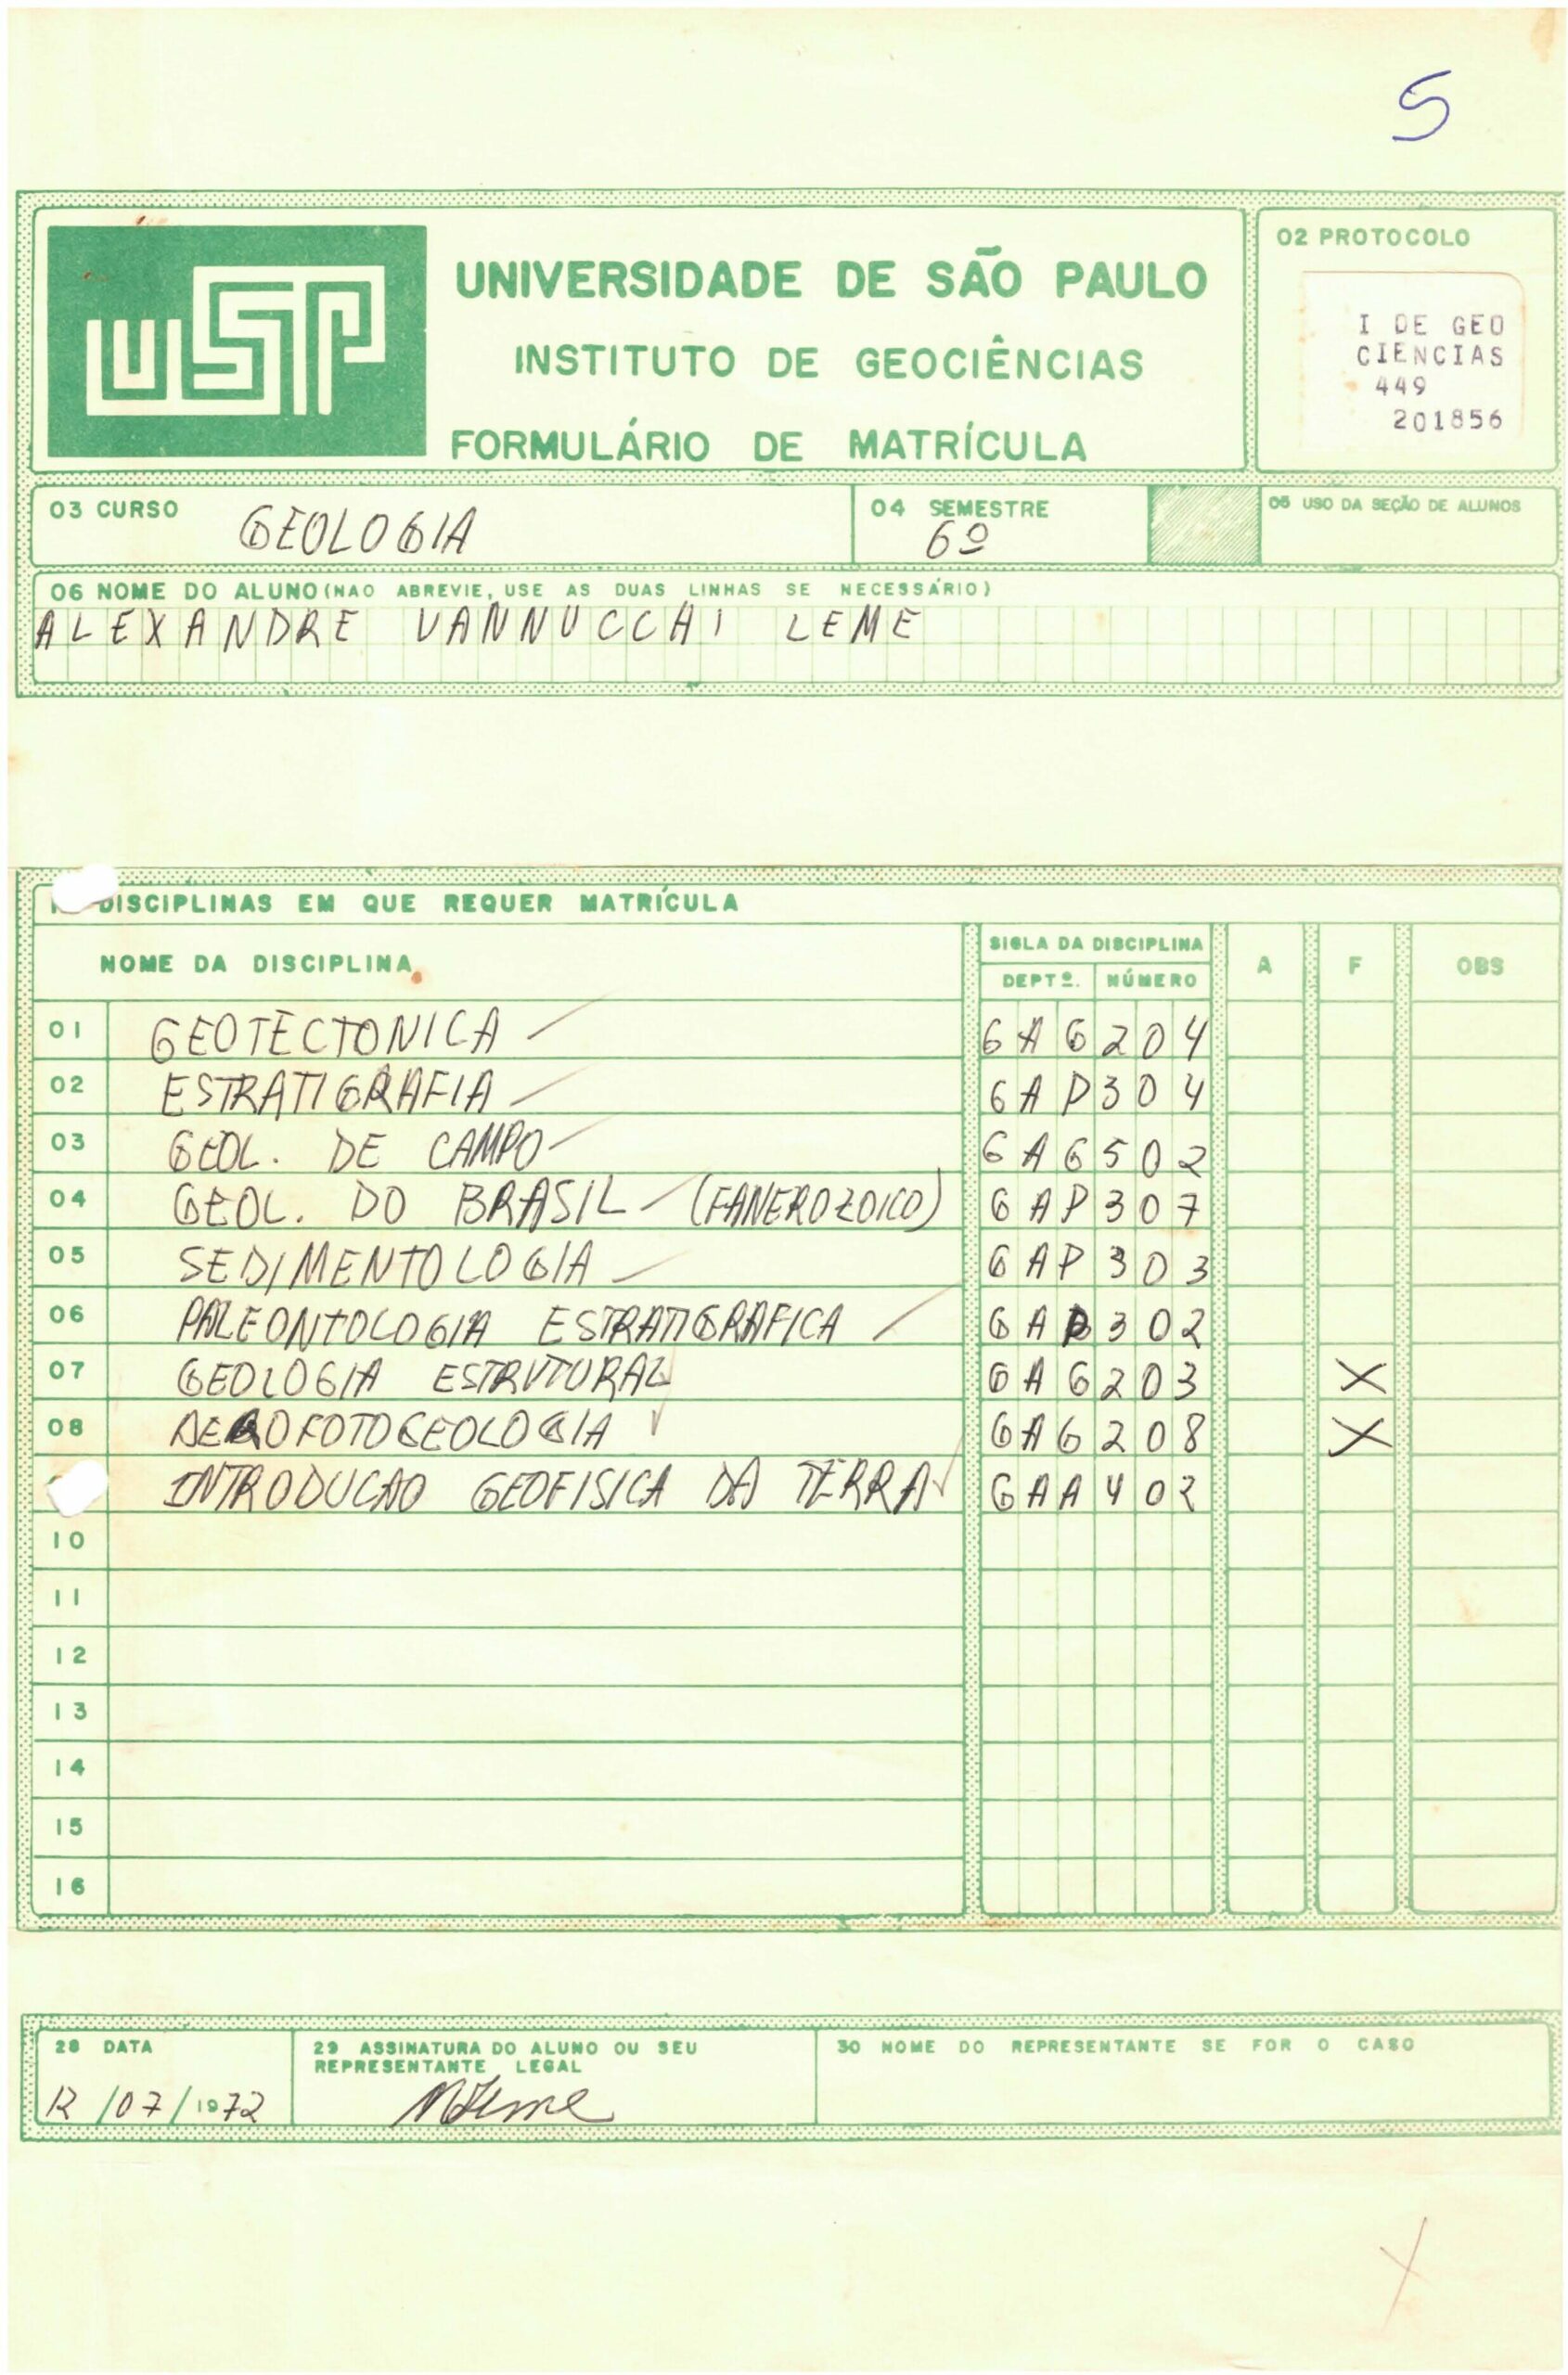 5
USP
UNIVERSIDADE DE SÃO PAULO
INSTITUTO DE GEOCIÊNCIAS
FORMULÁRIO DE MATRÍCULA
02 PROTOCOLO
I DE GEO
CIENCIAS
449
201856
03 CURSO GEOLOGIA
04 SEMESTRE 6º
05 USO DA SEÇÃO DE ALUNOS
06 NOME DO ALUNO (NAO ABREVIE, USE AS DUAS LINHAS SE NECESSÁRIO)
ALEXANDRE VANNUCCHI LEME
DISCIPLINAS EM QUE REQUER MATRÍCULA
NOME DA DISCIPLINA SIGLA DA DISCIPLINA A F OBS
DEPTº. NÚMERO
01 GEOTECTONICA GAG204
02 ESTRATIGRAFIA GAP304
03 GEOL. DE CAMPO GAG502
04 GEOL. DO BRASIL (FANEROZOICO) GAP307
05 SEDIMENTOLOGIA GAP303
06 PALEONTOLOGIA ESTRATIGRAFICA GAP302
07 GEOLOGIA ESTRUTURAL GAG203 X
08 AEROFOTOGEOLOGIA GAG208 X
INTRODUCAO GEOFISICA DA TERRA GAA402
10
11
12
13
14
15
16
28 DATA
12/07/1972
29 ASSINATURA DO ALUNO OU SEU
REPRESENTANTE LEGAL
30 NOME DO REPRESENTANTE SE FOR O CASO